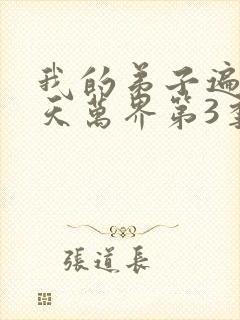 我的弟子遍
天萬界第3
張道長